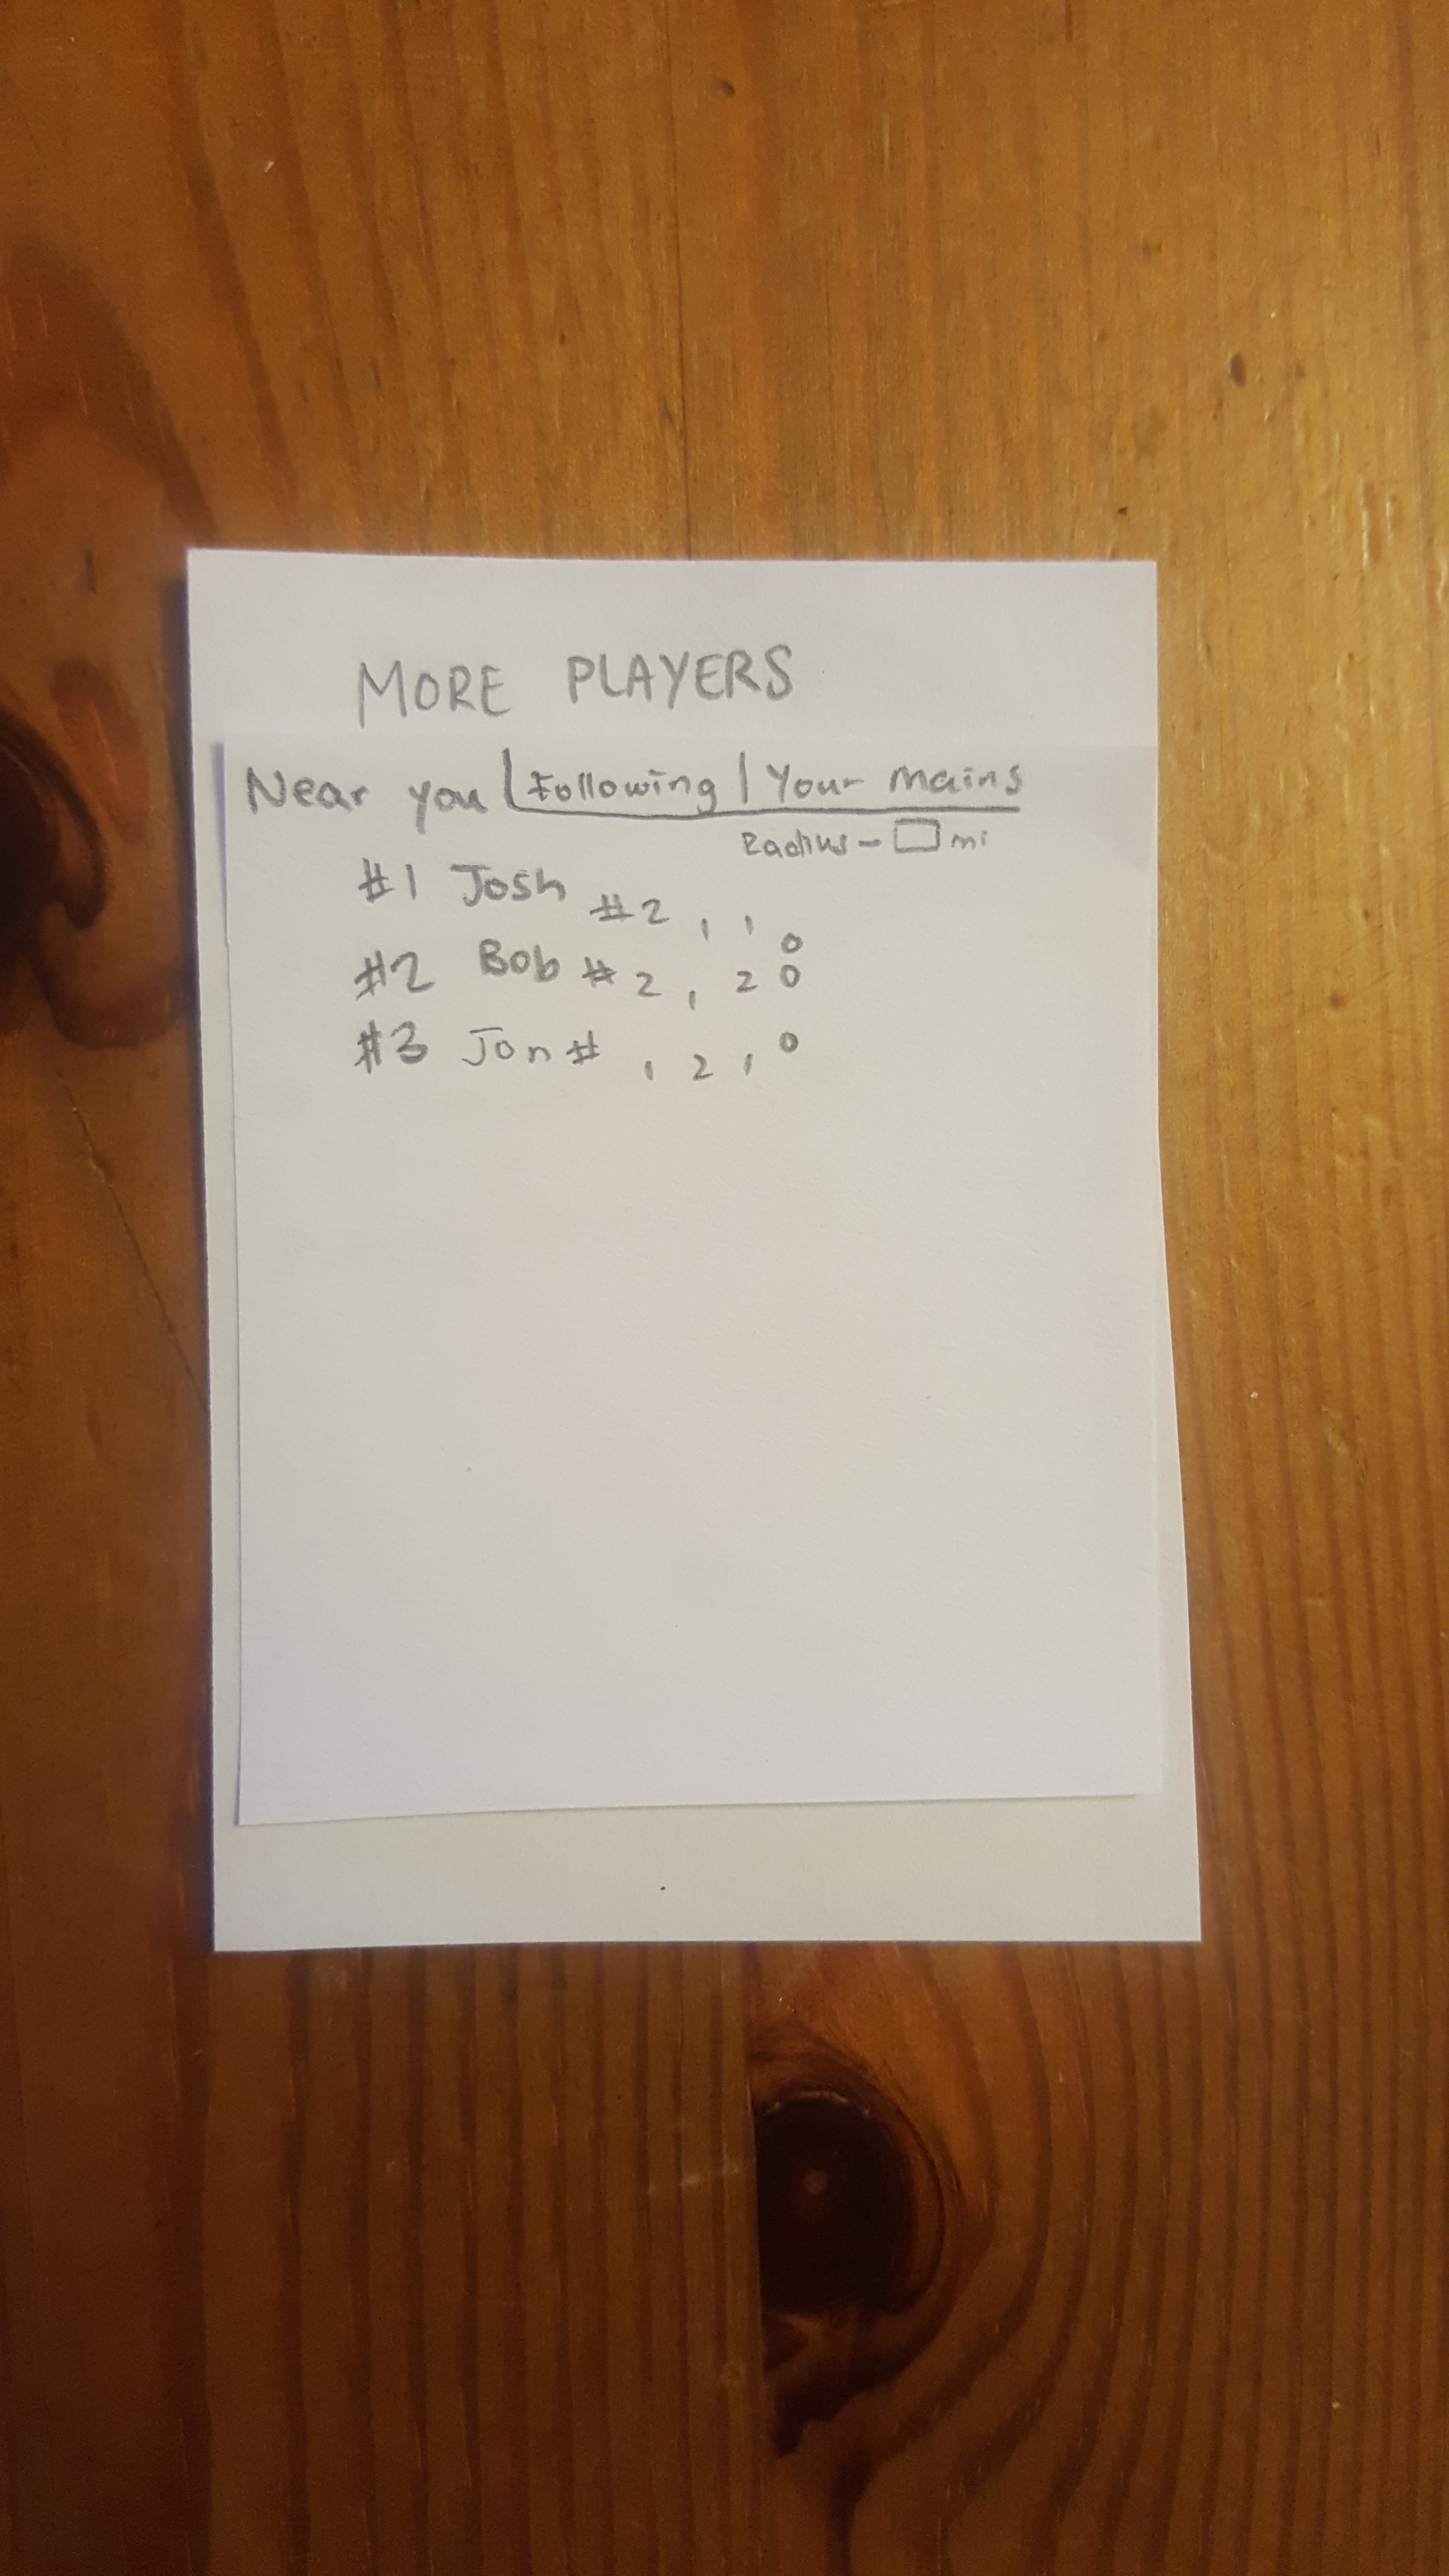 MORE PLAYERS
Near you | Following | Your mains
Radius - mi
#1 Josh #2,110
#2 Bob #2,120
#3 Jon # 1210